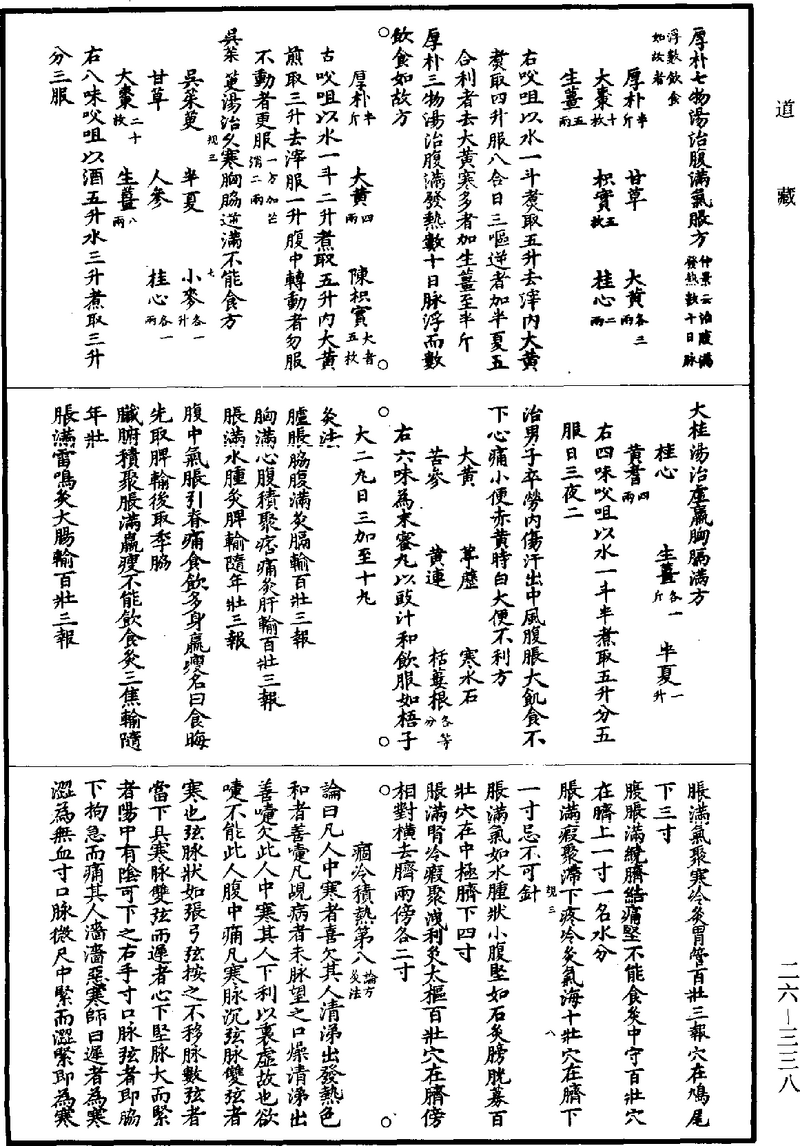 道藏
厚朴七物湯治腹滿氣脹方仲景云治腹滿發熱數十日脉
浮數飲食如故者
厚朴半斤 甘草 大黃各三兩
大棗十枚 枳實五枚 桂心二兩
生薑五兩
右㕮咀以水一斗煮取五升去滓內大黃
煮取四升服八合日三嘔逆者加半夏五
合利者去大黃寒多者加生薑至半斤
厚朴三物湯治腹滿發熱數十日脉浮而數
飲食如故方
厚朴半斤 大黃四兩 陳枳實大者五枚
古㕮咀以水一斗二升煮取五升內大黃
煎取三升去滓服一升腹中轉動者勿服
不動者更服一方加芒消二兩
吳茱萸湯治久寒胸脇逆滿不能食方
規三 七
吳茱萸 半夏 小麥各一升
甘草 人參 桂心各一兩
大棗二十枚 生薑八兩
右八味㕮咀以酒五升水三升煮取三升
分三服
大桂湯治虛羸胸膈滿方
桂心 生薑各一斤 半夏一升
黃耆四兩
右四味㕮咀以水一斗半煮取五升分五
服日三夜二
治男子卒勞內傷汗出中風腹脹大飢食不
下心痛小便赤黃時白大便不利方
大黃 葶藶 寒水石
苦參 黃連 栝蔞根各等分
右六味為末蜜丸以豉汁和飲服如梧子
大二九日三加至十九
灸法
臚脹脇腹滿灸膈輸百壯三報
胸滿心腹積聚痞痛灸肝輸百壯三報
脹滿水腫灸脾輸隨年壯三報
腹中氣脹引脊痛食飲多身羸瘦名曰食晦
先取脾輸後取季脇
臟腑積聚脹滿羸瘦不能飲食灸三焦輸隨
年壯
脹滿雷鳴灸大腸輸百壯三報
脹滿氣聚寒冷灸胃管百壯三報穴在鳩尾
下三寸
腹脹滿繞臍結痛堅不能食灸中守百壯穴
在臍上一寸一名水分
脹滿瘕聚滯下疼冷灸氣海十壯穴在臍下
規三 八
一寸忌不可針
脹滿氣如水腫狀小腹堅如石灸膀胱募百
壯穴在中極臍下四寸
脹滿腎冷瘕聚洩利灸太樞百壯穴在臍傍
相對橫去臍兩傍各二寸
痼冷積熱第八論方灸法
論曰凡人中寒者喜欠其人清涕出發熱色
和者善嚏凡覘病者未脉望之口燥清涕出
善嚏欠此人中寒其人下利以裏虛故也欲
嚏不能此人腹中痛凡寒脉沉弦脉雙弦者
寒也弦脉狀如張弓弦按之不移脉數弦者
當下具寒脉雙弦而遲者心下堅脉大而緊
者陽中有陰可下之右手寸口脉弦者即脇
下拘急而痛其人濇濇惡寒師曰遲者為寒
澀為無血寸口脉微尺中緊而澀緊即為寒
二六—三三八